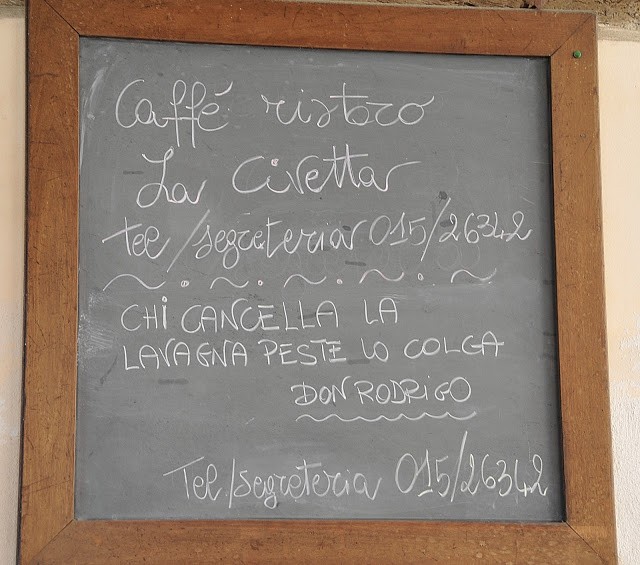 Caffé ristoro
La Civetta
tel/segreteria 015/26342
~ . ~ . ~ . ~ . ~
CHi CANCELLA LA
LAVAGNA PESTE LO COLGA
DON RODRIGO
Tel/segreteria 015/26342